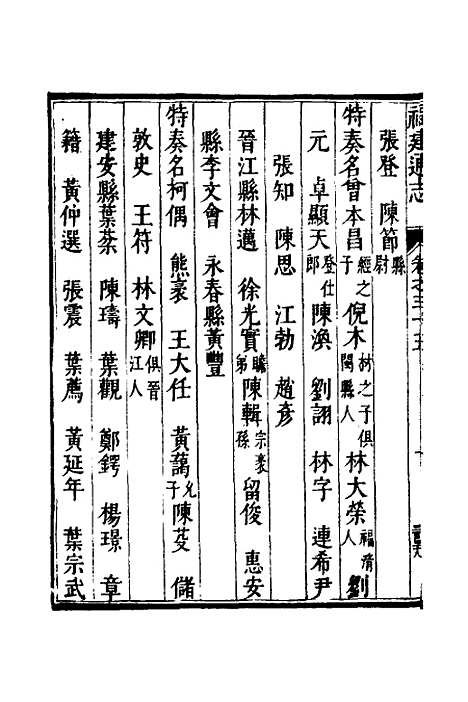 福建通志
張登 陳節縣尉
特奏名曾本昌經之子倪木材之子俱閩縣人林大榮福清人劉
元 卓顯天登仕郎陳渙 劉詡 林字 連希尹
張知 陳思 江勃 趙彥
晉江縣林邁 徐光實瞻弟陳輯宗裒孫留俊 惠安
縣李文會 永春縣黃豐
特奏名柯偶 熊裒 王大任 黃藹允子陳芟 儲
敦史 王符 林文卿俱晉江人
建安縣葉棻 陳璹 葉觀 鄭鍔 楊璟 章
籍 黃仲選 張震 葉薦 黃延年 葉宗武